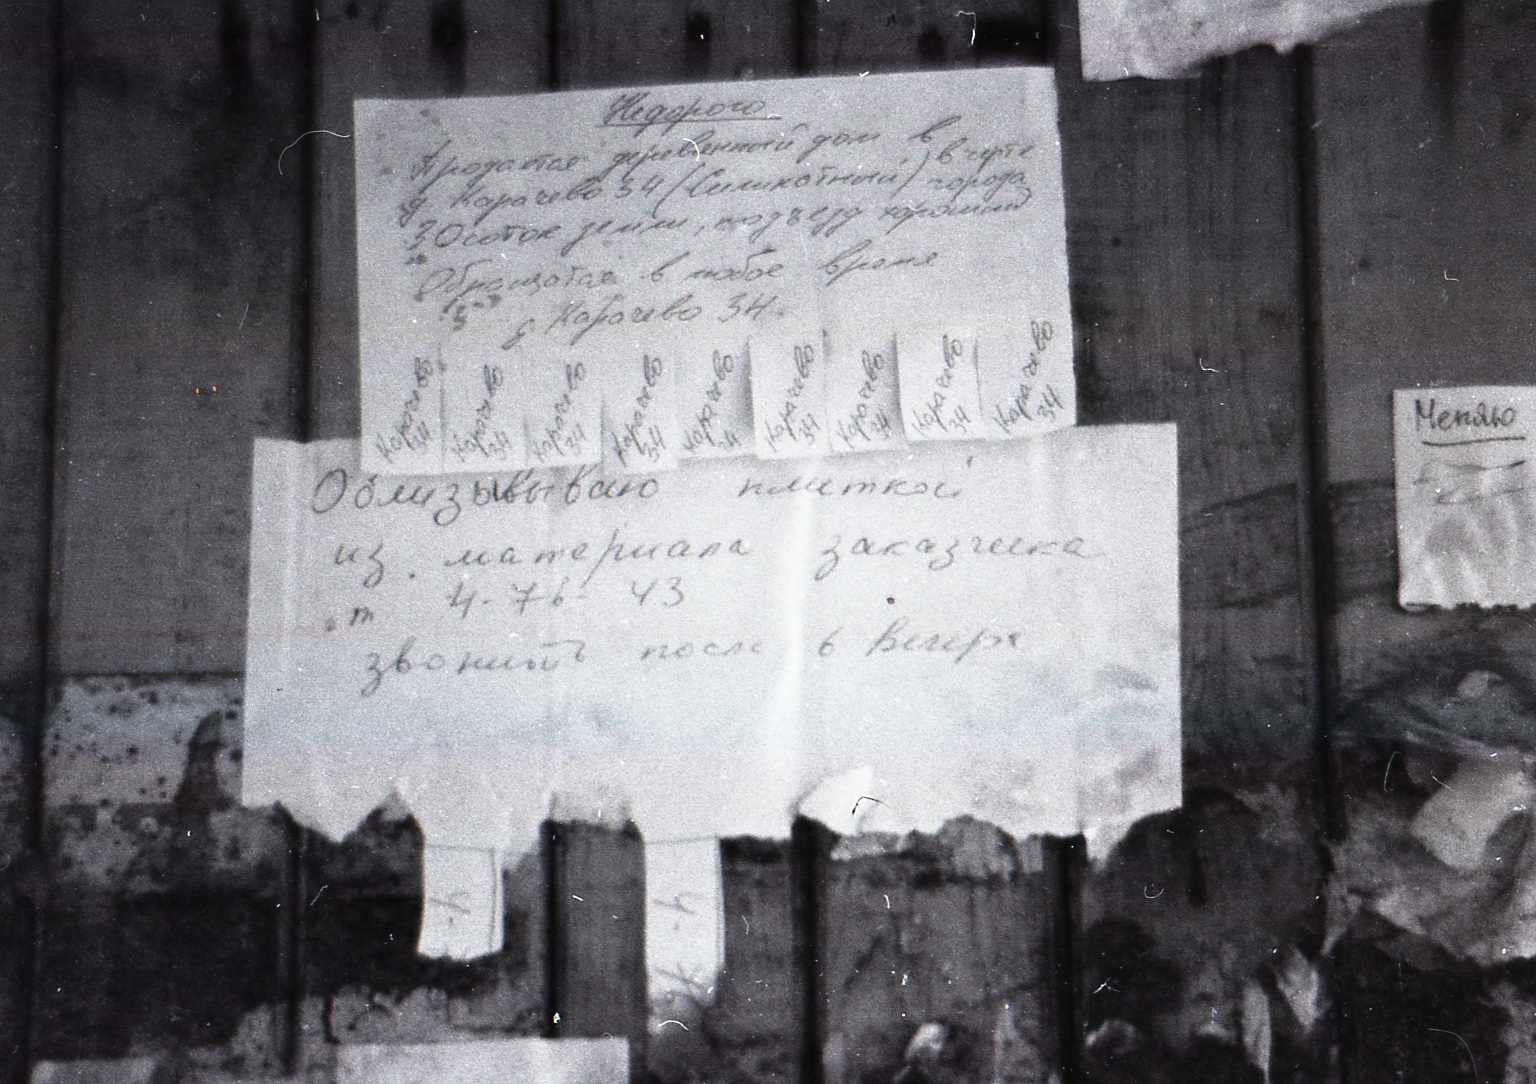 Недорого
Продается деревенный дом в
д. Карачево 34 (Силикатный) в черте города
30 соток земли, подъезд хороший
Обращатся в любое время
д. Карачево 34.
Карачево 34
Карачево 34
Карачево 34
Карачево 34
Карачево 34
Карачево 34
Карачево 34
Карачево 34
Карачево 34
Облизывываю плиткой
из материала заказчика
т 4-76-43
звонить после 6 вечера
Меняю
4-
4-